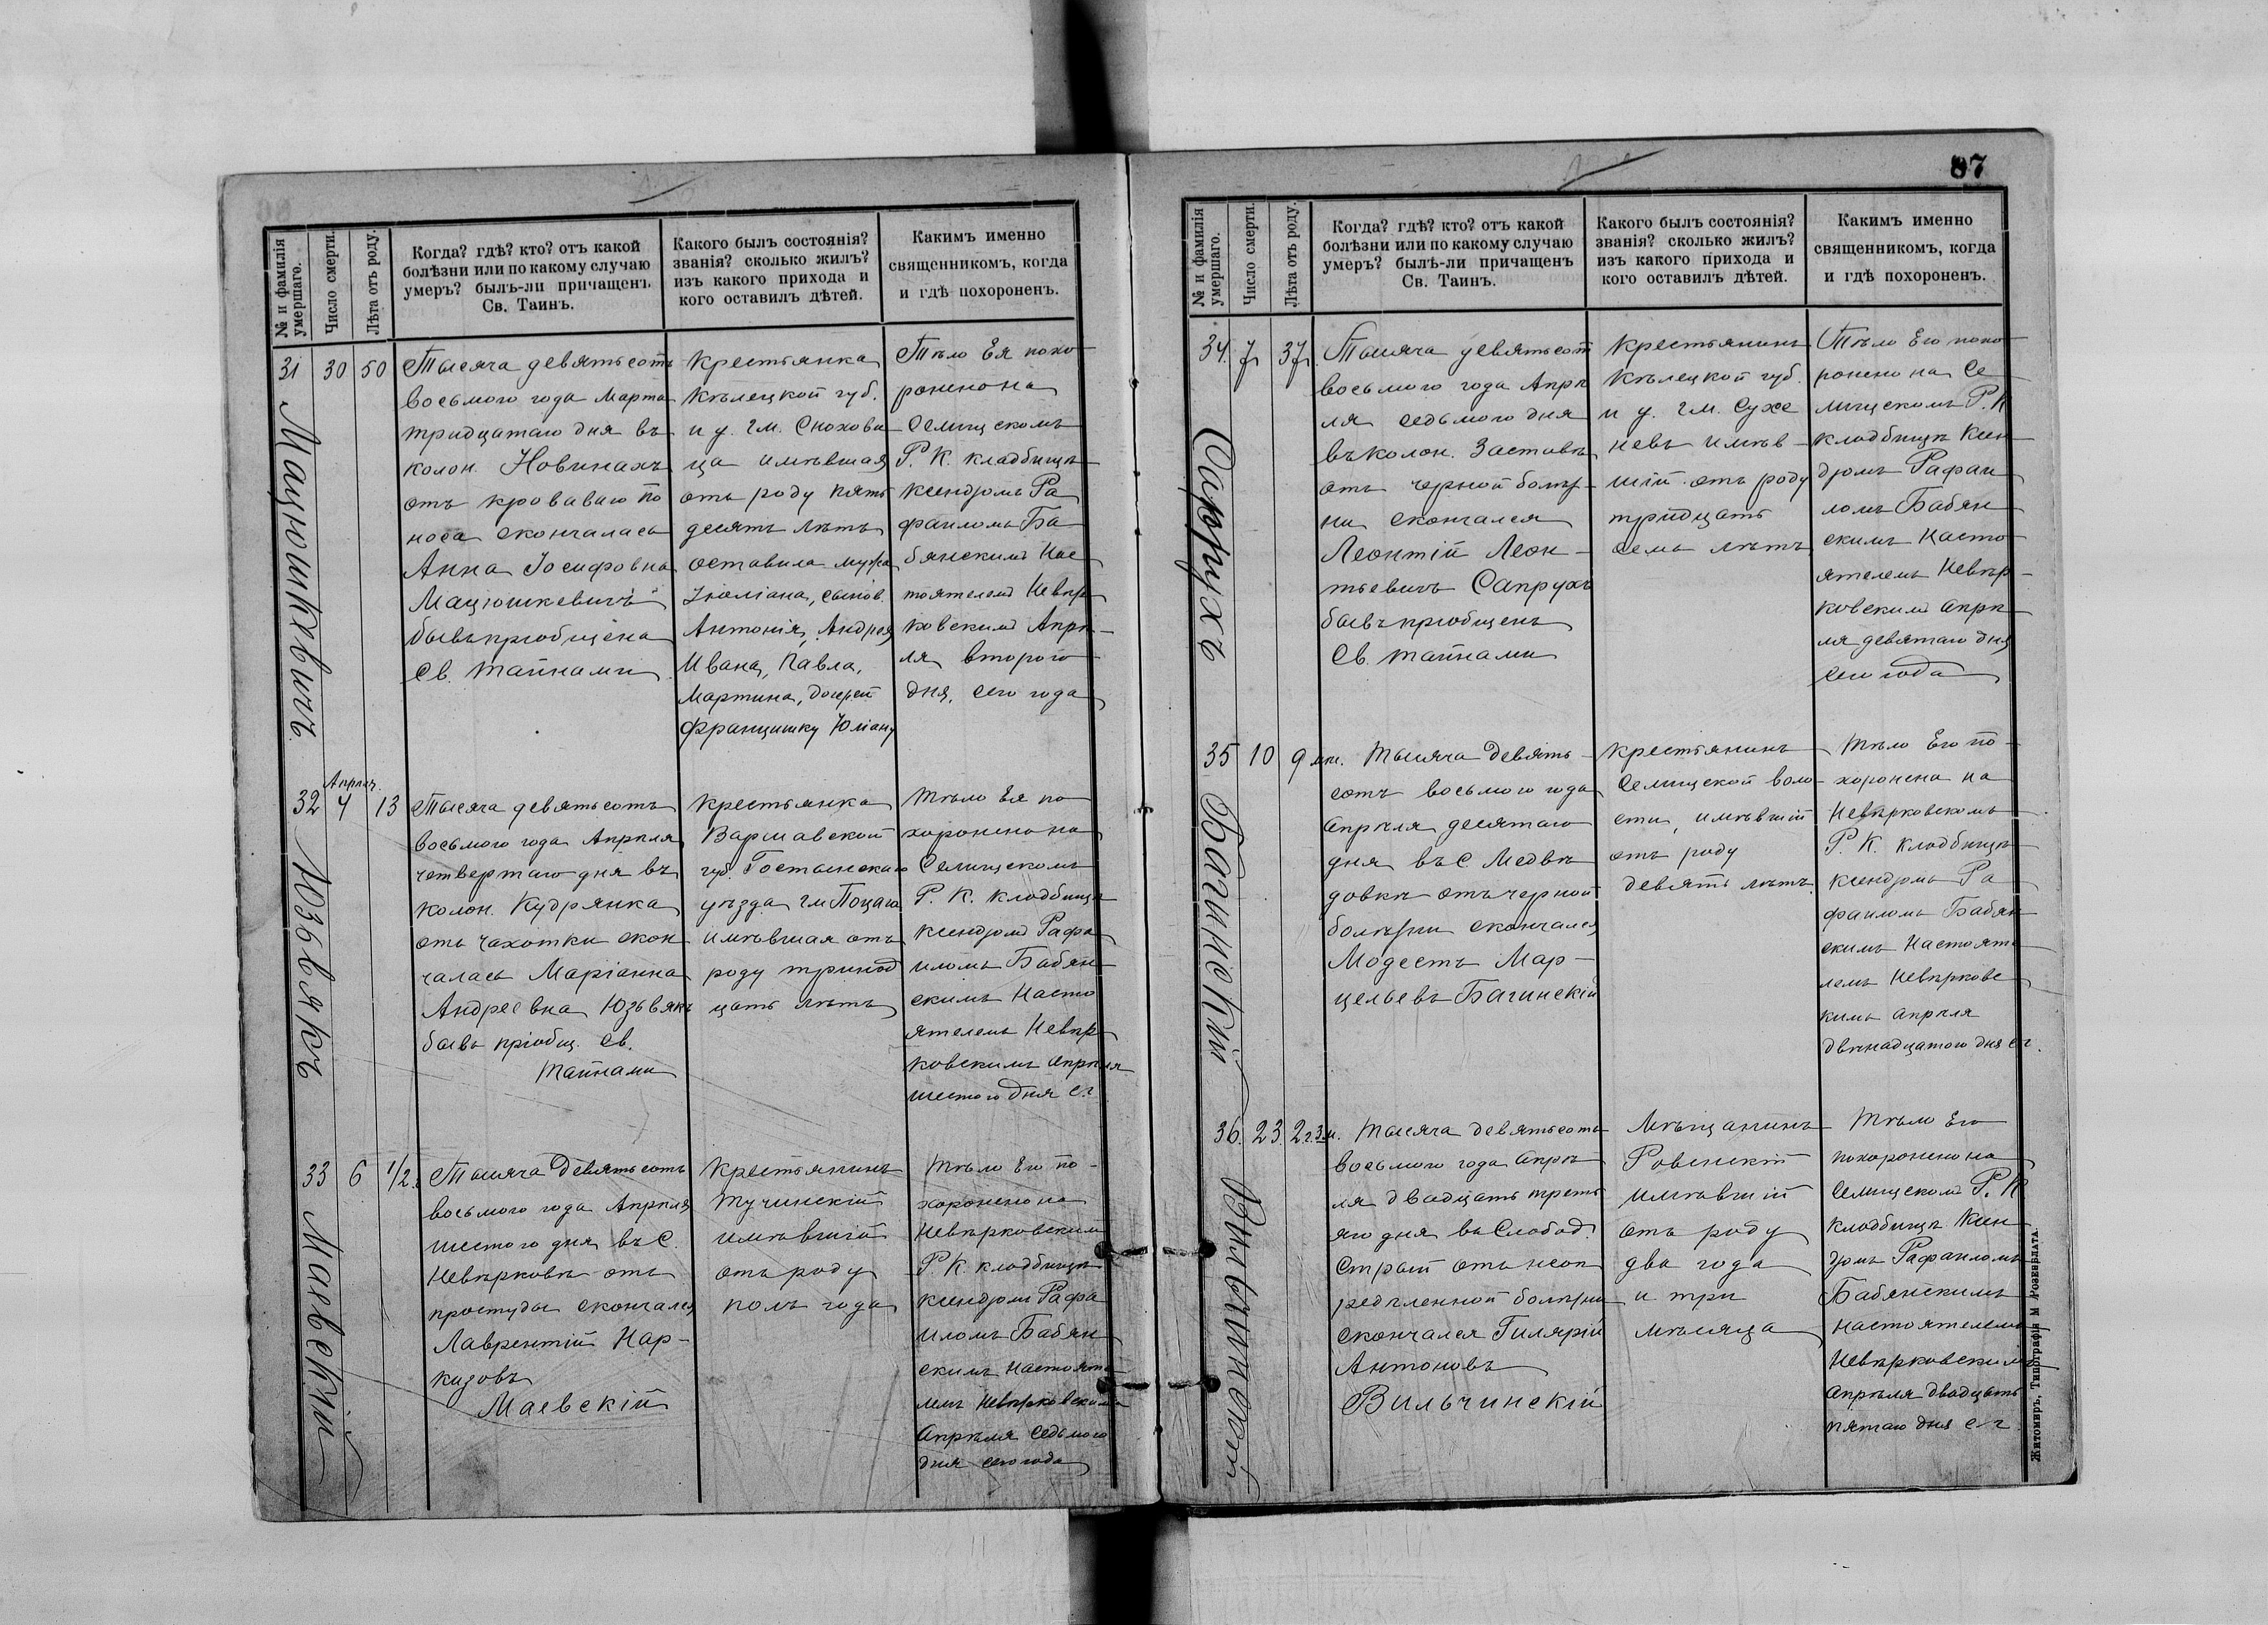 87
№ и фамилія умершаго.
Число смерти.
Лѣта отъ роду.
Когда? гдѣ? кто? отъ какой
болѣзни или по какому случаю
умеръ? былъ-ли причащенъ
Св. Таинъ.
Какого былъ состоянія?
званія? сколько жилъ?
изъ какого прихода и
кого оставилъ дѣтей.
Какимъ именно
священникомъ, когда
и гдѣ похороненъ.
31
30
50
Мацюшкевичъ
Тысяча девятьсотъ
восьмого года Марта
тридцатаго дня въ
колон. Новинахъ
отъ кроваваго по
носа скончалась
Анна Іосифовна
Мацюшкевичъ
бывъ пріобщена
Св. Тайнами
Крестьянка
Кѣлецкой губ.
и у. гм. Снохови
ца имѣвшая
отъ роду пять
десять лѣтъ
оставила мужа
Іюліана, сынов.
Антонія, Андрея
Ивана, Павла,
Мартина, дочерей
Францишку Юліану
Тѣло Ея похо
ронено на
Селищскомъ
Р. К. кладбищѣ
ксендзомъ Ра
фаиломъ Ба
бянскимъ Нас
тоятелемъ Невѣр
ковскимъ Апрѣ
ля второго
дня, сего года
32
Апрѣль.
4
13
Юзьвякъ
Тысяча девятьсотъ
восьмого года Апрѣля
четвертаго дня въ
колон. Кудрянка
отъ чахотки скон
чалась Маріанна
Андреевна Юзьвякъ
бывъ пріобщ. Св.
Тайнами
Крестьянка
Варшавской
губ. Гостынскаго
уѣзда гм
имѣвшая отъ
роду тринад
цать лѣтъ
Тѣло Ея по
хоронено на
Селищскомъ
Р. К. кладбищѣ
ксендзомъ Рафа
иломъ Бабян
скимъ Насто
ятелемъ Невѣр
ковскимъ Апрѣля
шестого дня с.г.
33
6
1/2
Маевскій
Тысяча девятьсотъ
восьмого года Апрѣля
шестого дня въ С.
Невѣрковѣ отъ
простуды скончался
Лаврентій Нар-
кизовъ
Маевскій
Крестьянинъ
Тучинскій
имѣвшій
отъ роду
полъ года
Тѣло Его по-
хоронено на
Невѣрковскимъ
Р. К. кладбищѣ
ксендзомъ Рафа
иломъ Бабян
скимъ Настояте
лемъ Невѣрковскимъ
Апрѣля седьмого
дня сего года
№ и фамилія умершаго.
Число смерти.
Лѣта отъ роду.
Когда? гдѣ? кто? отъ какой
болѣзни или по какому случаю
умеръ? былъ-ли причащенъ
Св. Таинъ.
Какого былъ состоянія?
званія? сколько жилъ?
изъ какого прихода и
кого оставилъ дѣтей.
Какимъ именно
священникомъ, когда
и гдѣ похороненъ.
34.
7
37
Сапрухъ
Тысяча девятьсот
восьмого года Апрѣ
ля седьмого дня
въ колон. Заставѣ
отъ черной болѣз-
ни скончался
Леонтій Леон-
тьевичъ Сапрухъ
бывъ пріобщенъ
Св. Тайнами
Крестьянинъ
Кѣлецкой губ.
и у. гм. Сухе
невъ имѣв-
шій отъ роду
тридцать
семь лѣтъ
Тѣло Его похо
ронено на Се
лищскомъ Р. К
кладбищѣ Ксен
дзомъ Рафаи
ломъ Бабян
скимъ Насто
ятелемъ Невѣр-
ковскимъ Апрѣ
ля девятаго дня
сего года
35
10
9
Багинскій
Тысяча девять-
сотъ восьмого года
Апрѣля десятаго
дня въ С. Медвѣ
довкѣ отъ черной
болѣзни скончался
Модестъ Мар-
цельевъ Багинскій
Крестьянинъ
Селищской воло-
сти, имѣвшій
отъ роду
девять лѣтъ
Тѣло Его по-
хоронено на
Невѣрковскомъ
Р. К. кладбищѣ
ксендзомъ Ра
фаиломъ Бабян
скимъ Настояте
лемъ Невѣрковс
кимъ Апрѣля
двѣнадцатого дня с.г.
36.
23
2г.3м.
Вильчинскій
Тысяча девятьсотъ
восьмого года Апрѣ
ля двадцать треть
яго дня въ Слобод.
Стрый отъ неоп
редѣленной болѣзни
скончался Гилярій
Антоновъ
Вильчинскій
Мѣщанинъ
Ровенскій
имѣвшій
отъ роду
два года
и три
мѣсяца
Тѣло Его
похоронено на
Селищском Р. К
кладбищѣ Ксен
дзмъ Рафаиломъ
Бабянскимъ
Настоятелемъ
Невѣрковскимъ
Апрѣля двадцать
пятаго дня с г.
Житомиръ, Типографія М Розенблата.